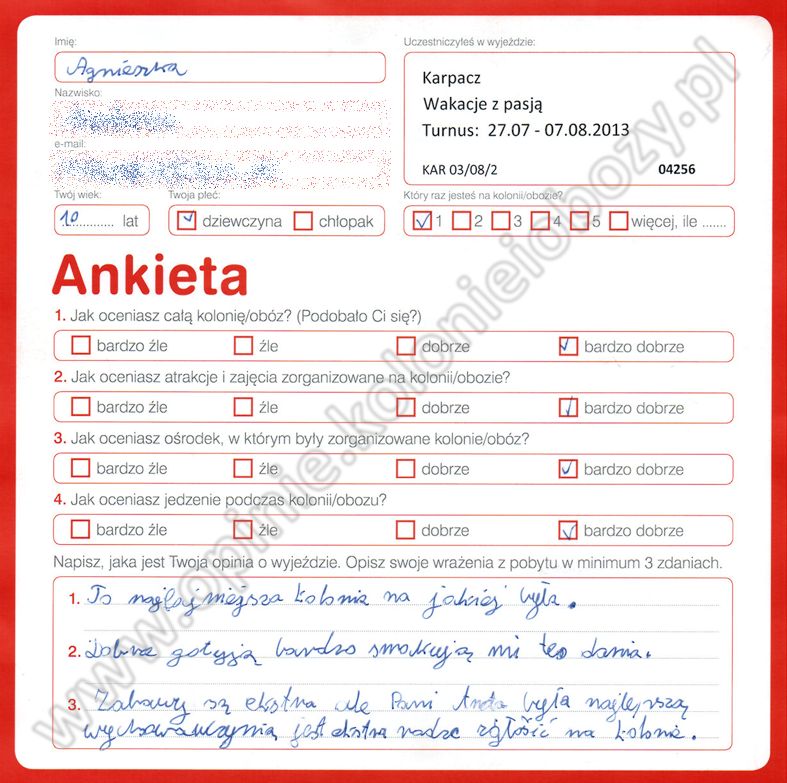 Imię:
Agnieszka
Uczestniczyłeś w wyjeździe:
Karpacz
Wakacje z pasją
Turnus: 27.07 - 07.08.2013
KAR 03/08/2 04256
Nazwisko:
e-mail:
Twój wiek:
10 lat
Twoja płeć:
dziewczyna chłopak
Który raz jesteś na kolonii/obozie?
1 2 3 4 5 więcej, ile .......
Ankieta
1. Jak oceniasz całą kolonię/obóz? (Podobało Ci się?)
bardzo źle źle dobrze bardzo dobrze
2. Jak oceniasz atrakcje i zajęcia zorganizowane na kolonii/obozie?
bardzo źle źle dobrze bardzo dobrze
3. Jak oceniasz ośrodek, w którym były zorganizowane kolonie/obóz?
bardzo źle źle dobrze bardzo dobrze
4. Jak oceniasz jedzenie podczas kolonii/obozu?
bardzo źle źle dobrze bardzo dobrze
Napisz, jaka jest Twoja opinia o wyjeździe. Opisz swoje wrażenia z pobytu w minimum 3 zdaniach.
1. To najfajniejsza kolonia na jakiej była.
2. Dobrze gotują bardzo smakują mi te dania.
3. Zabawy są ekstra ale Pani Anda była najlepszą
wychowawczynią jest ekstra radze zgłosić na kolonie.
www.opinie.kolonieiobozy.pl